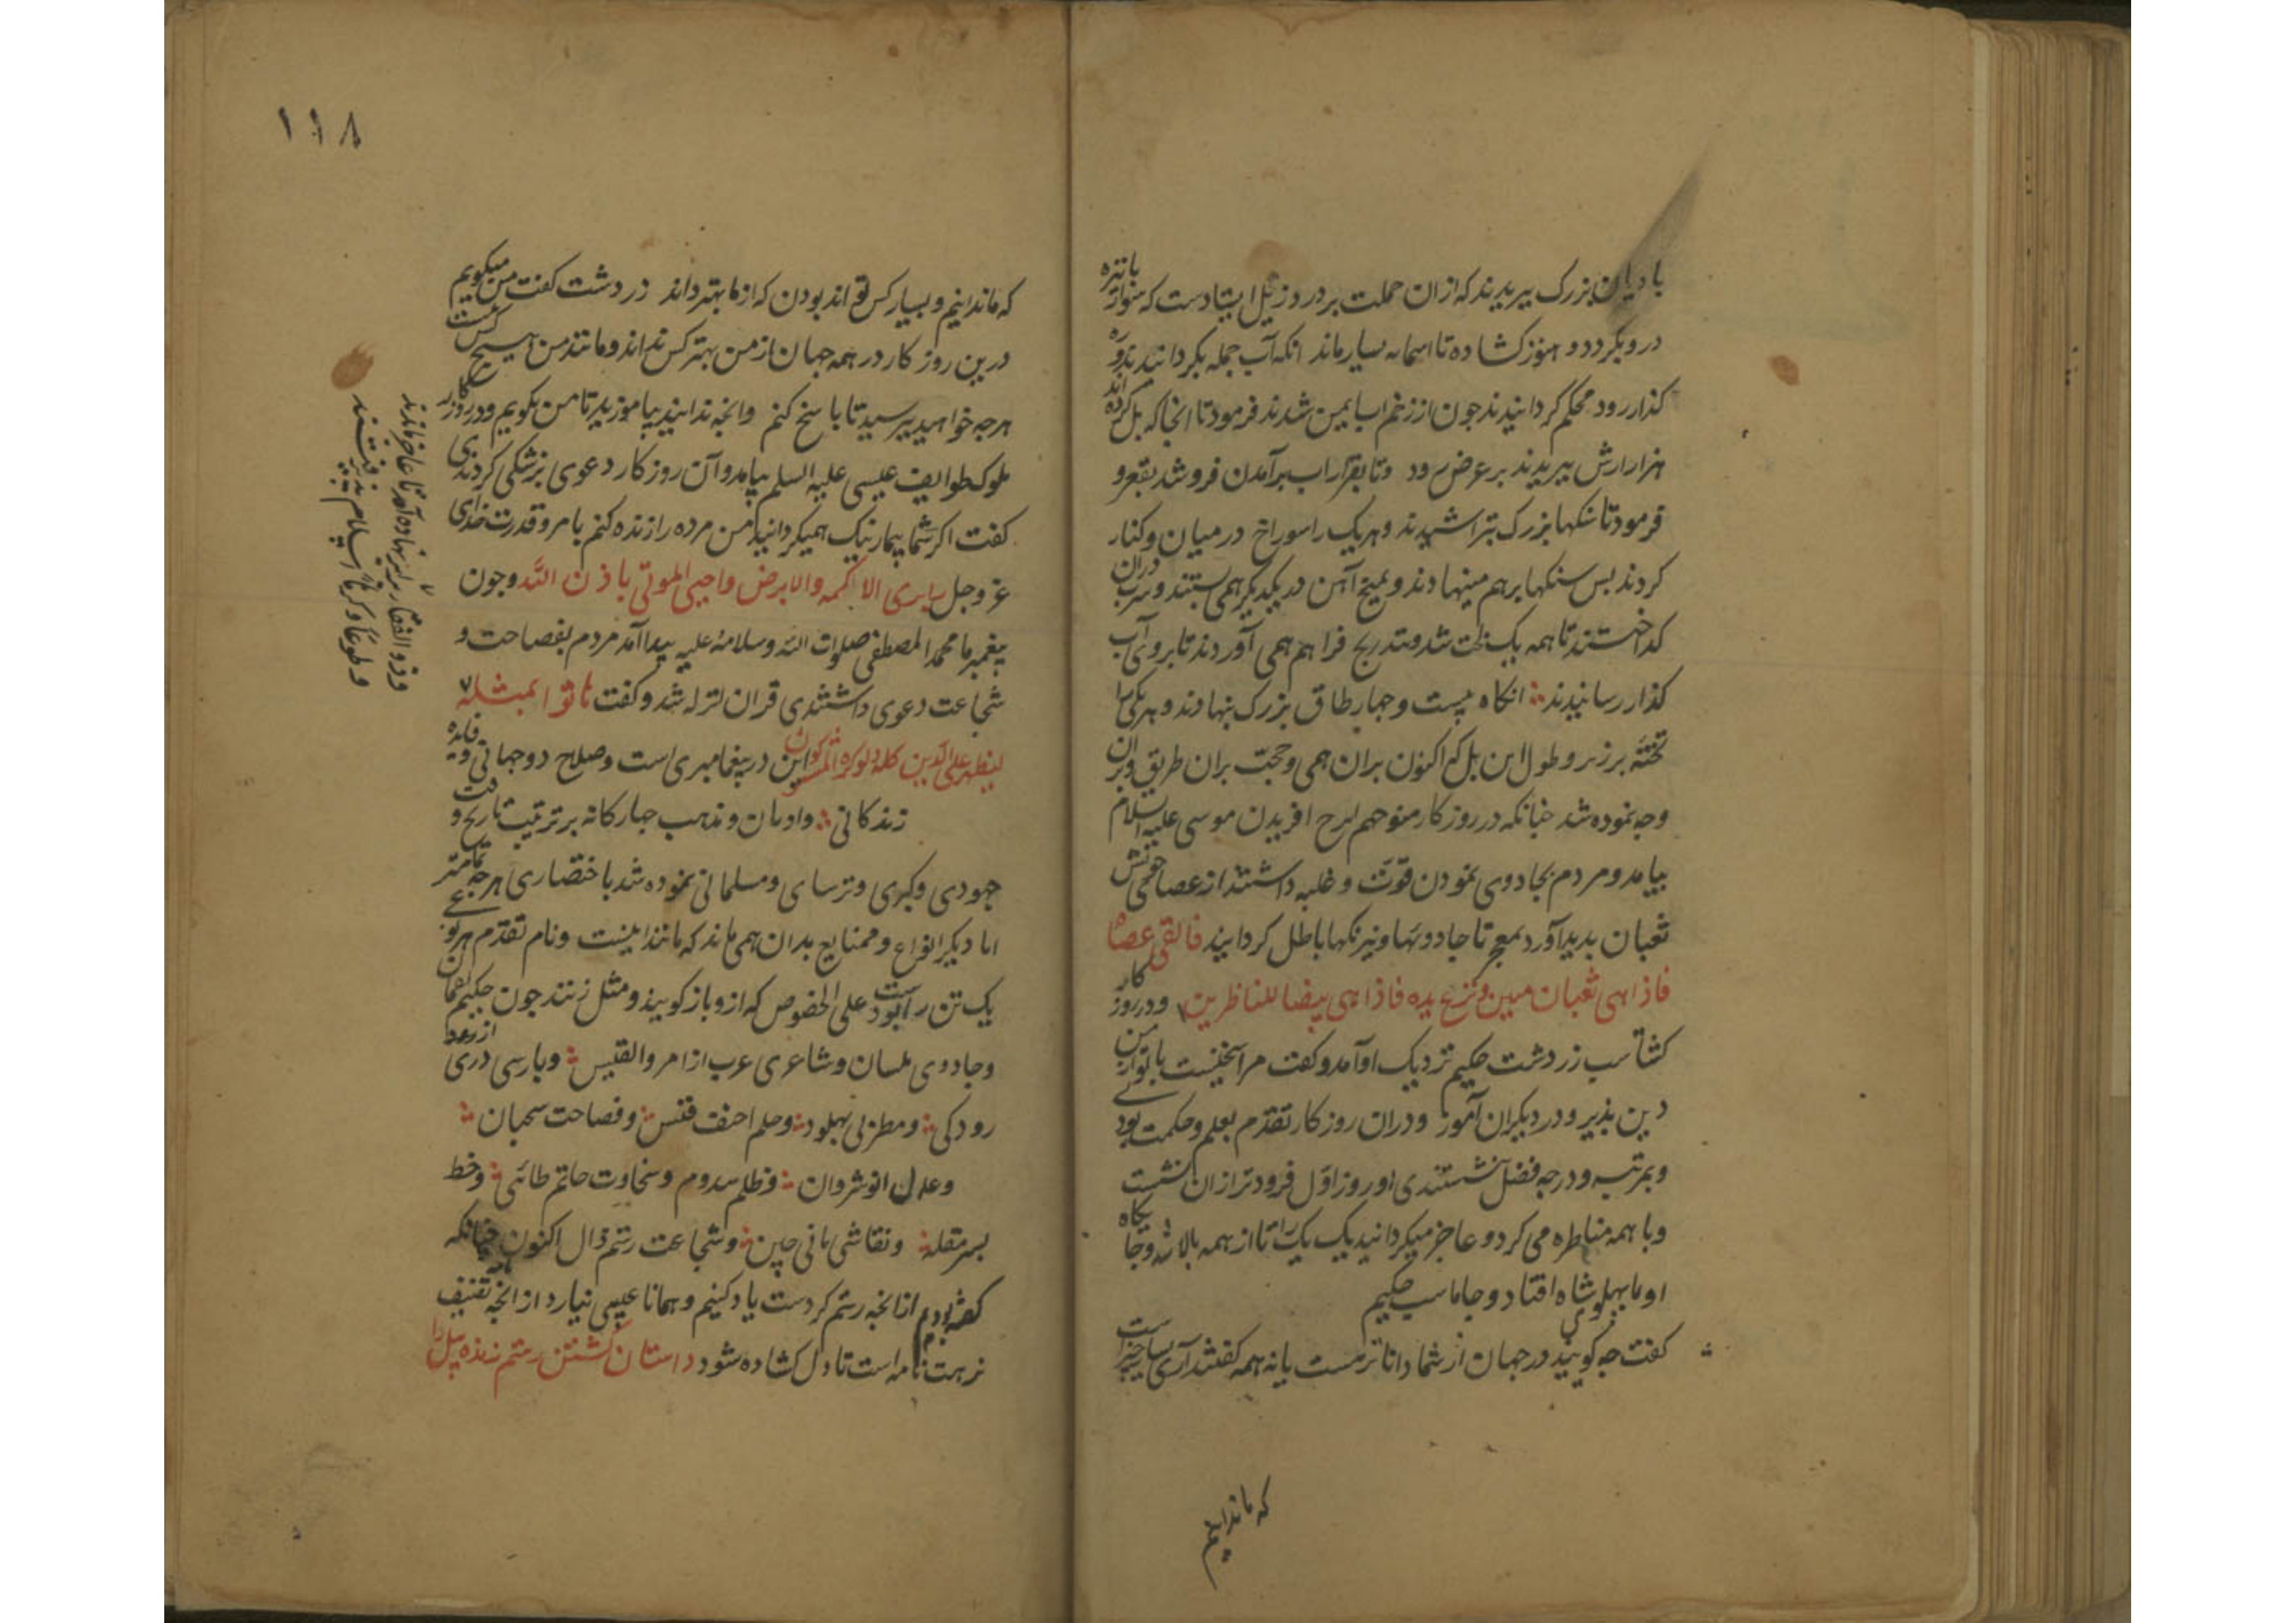 با دیان بزرک ببریدند که ازان حملت بر دروزیل ایستادست که سنوار با نیزه
در وبکردد و هنوز کشاده تا اسمانه بسیار ماند انکه آب جمله بکردانیدند و ره
کذار رود محکم کردانیدند جون از زخم اب ایمن شدند فرمود تا انجا که بل کرده اند
هزار ارش ببریدند بر عرض رود وتا بقرار اب برآمدن فروشد بقعرو
فرمود تا سنکها بزرک بتراشیدند وهریک را سوراخ در میان وکنار
کردند بس سنکها برهم مینهادند وبمیخ آهن در یکدیکر همی بستند وسرب دران
کداختند تا همه یک لخت شد وبتدریج فراهم همی آوردند تا بروی آب
کذار رسانیدند انکاه بیست وجهار طاق بزرک بنهادند وهر یکی را
تخته برزبر وطول این بل که اکنون بران همی وحجت بران طریق وبران
وجه نموده شد جنانکه در روزکار منوجهر افریدن موسی علیه السلام
بیامد ومردم بجادوی نمودن قوت وغلبه داشتند از عصا جوبی خویش
ثعبان بدید آورد بمعجز تا جادوئیها ونیرنکها باطل کردانید فالقی عصاه
فاذا هی ثعبان مبین ونزع یده فاذا هی بیضا للناظرین ودر روزکار
کشتاسب زردشت حکیم نزدیک او آمد وکفت مرا سخنیست با تو از من
دین بذیر ودر دیکران آموز ودران روزکار تقدم بعلم وحکمت بودی
وبمرتبه ودرجه فضل نشستندی او روز اول فرودتر ازان نشست
وبا همه مناظره می کرد و عاجز میکردانید یک یک را تا از همه بالا شد وجایکاه
او تا بهلوی شاه افتاد وجاماسب حکیم
کفت جه کوئید در جهان از شما داناتر هست یا نه همه کفتند آری بسا جیزاست
که ما ندانیم
۱۱۸
که ما ندانیم و بسیار کس تواند بودن که از ما بهتر داند زردشت کفت من میکویم
درین روزکار در همه جهان از من بهتر کس نداند ومانند من هیچ کس نیست
هرجه خواهید ببرسید تا باسخ کنم وانجه ندانید بیاموزید تا من بکویم ودر روزکار
ملوک طوایف عیسی علیه السلم بیامد وآن روزکار دعوی بزشکی کردندی
کفت اکر شما بیمار نیک همیکردانید من مرده را زنده کنم بامر وقدرت خدای
عز وجل یابری الا اکمه والابرص واحیی الموتی باذن الله وجون
بیغمبر ما محمد المصطفی صلوات الله وسلامه علیه بیدا آمد مردم بفصاحت و
شجاعت دعوی داشتندی قران لزله شد وکفت فاتوا بمثله
لیظهر علی الدین کله ولو کره المشرکون این در بیغامبری است وصلاح دوجهانی وفایده
زندکانی وادیان ومذهب جهارکانه بر ترتیب تاریخ وقت
جهودی وکبری وترسای ومسلمانی نموده شد باختصاری هرجه تمامتر
اما دیکر انواع وصنایع بدان همی ماند که مانندا نیست ونام تقدم هر نوعی
یک تن را بودست علی الخصوص که ازو باز کویند ومثل زنند جون حکیم لقمان
وجادوی بلسان وشاعری عرب از امروالقیس وبارسی دری از
رودکی ومطربی بهلود وحلم احنف قیس وفصاحت سحبان
وعدل انوشروان وظلم سدوم وسخاوت حاتم طائی وخط
بسر مقله ونقاشی مانی جین وشجاعت رستم زال اکنون جنانکه
کفته بودم ازانجه رستم کردست یاد کنیم وهمانا عیبی نیارد از انجه تصنیف
نزهت نامه است تا دل کشاده شود داستان کشتن رستم زنده بیل را
وذو الفقار برابر نهاده آمد تا عاجز ماندند
وطوعا وکرها اسلام بذیرفتند